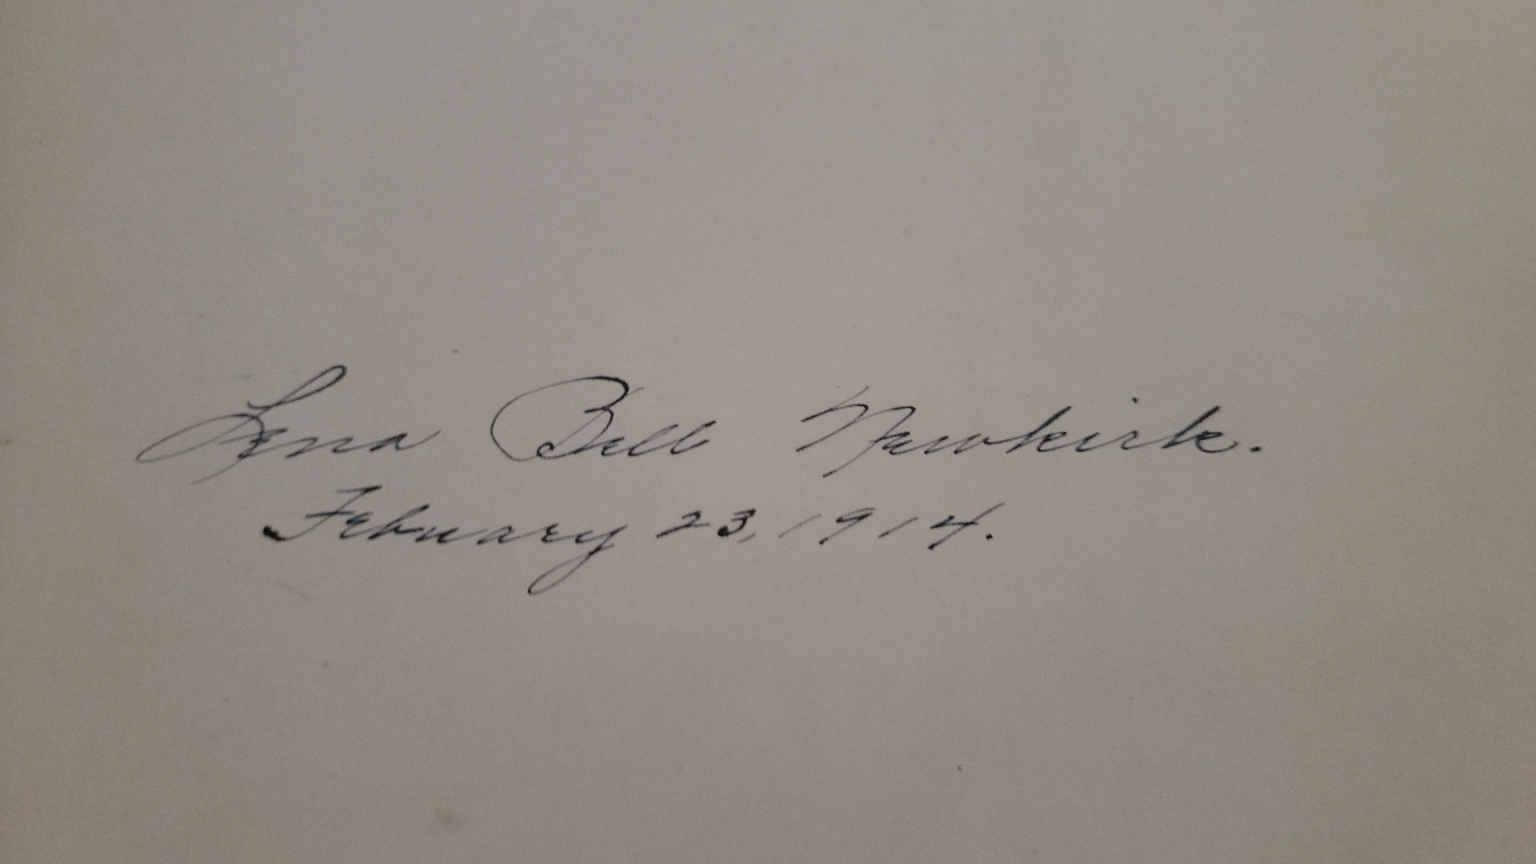 Lena Bell Newkirk.
February 23, 1914.